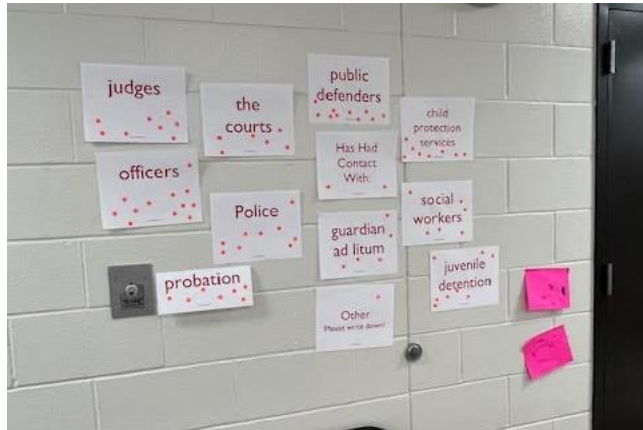 judges
the
courts
public
defenders
child
protection
services
officers
Police
Has Had
Contact
With:
social
workers
guardian
ad litum
probation
juvenile
detention
Other
Please write down!